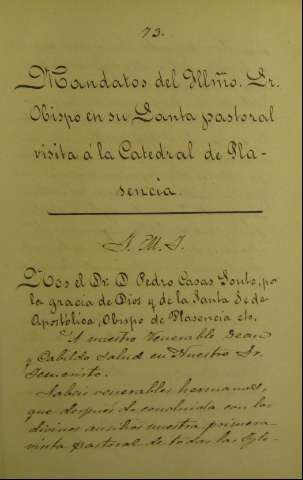 73.
Mandatos del Illmo. Sr.
Obispo en su Santa pastoral
visita á la Catedral de Pla-
sencia.
J. M. J.
Nos el Dr. D. Pedro Casas Souto, po
la gracia de Dios y de la Santa Sede
Apostólica, Obispo de Plasencia etc.
A nuestro Venerable Dean
y Cabildo salud en Nuestro Sr.
Jesucristo.
Sabeis venerables hermanos,
que después de concluida con los
divinos auxilios nuestra primera
visita pastoral de todas las Igle-